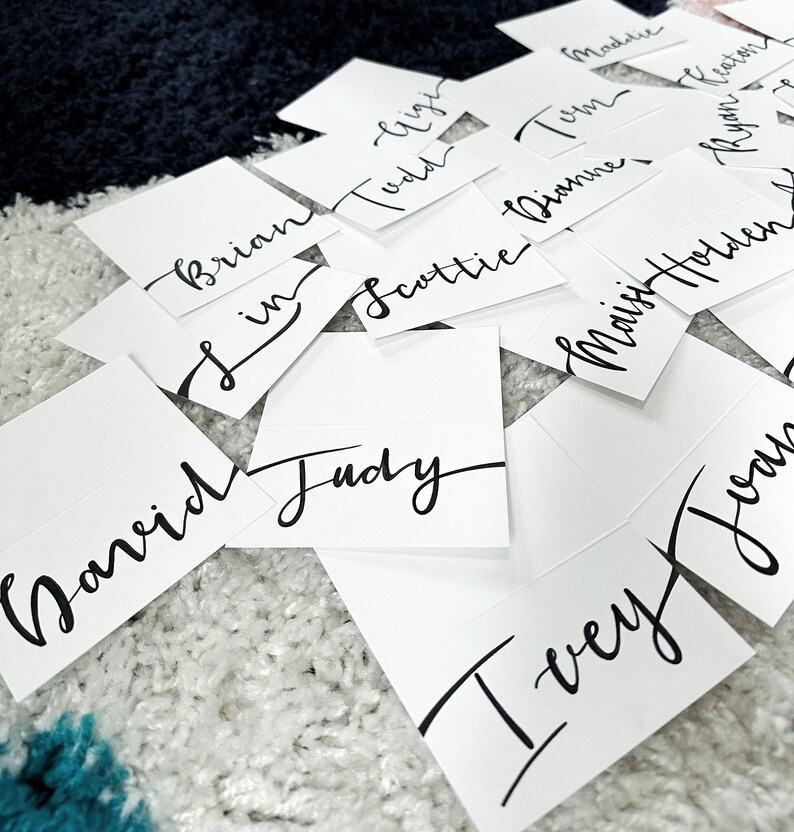 Maddie
Keaton
Gigi
Tom
Ryan
Todd
Dianne
Brian
Scottie
Holden
Lin
Maisi
David
Judy
Joan
Ivey